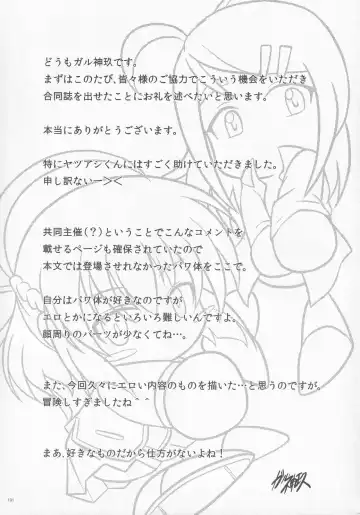 どうもガル神玖です。
まずはこのたび、皆々様のご協力でこういう機会をいただき
合同誌を出せたことにお礼を述べたいと思います。
本当にありがとうございます。
特にヤツアシくんにはすごく助けていただきました。
申し訳ないー＞＜
共同主催(？)ということでこんなコメントを
載せるページも確保されていたので
本文では登場させれなかったパワ体をここで。
自分はパワ体が好きなのですが
エロとかになるといろいろ難しいんですよ。
顔周りのパーツが少なくてね…。
また、今回久々にエロい内容のものを描いた…と思うのですが、
冒険しすぎましたね＾＾
まあ、好きなものだから仕方がないよね！